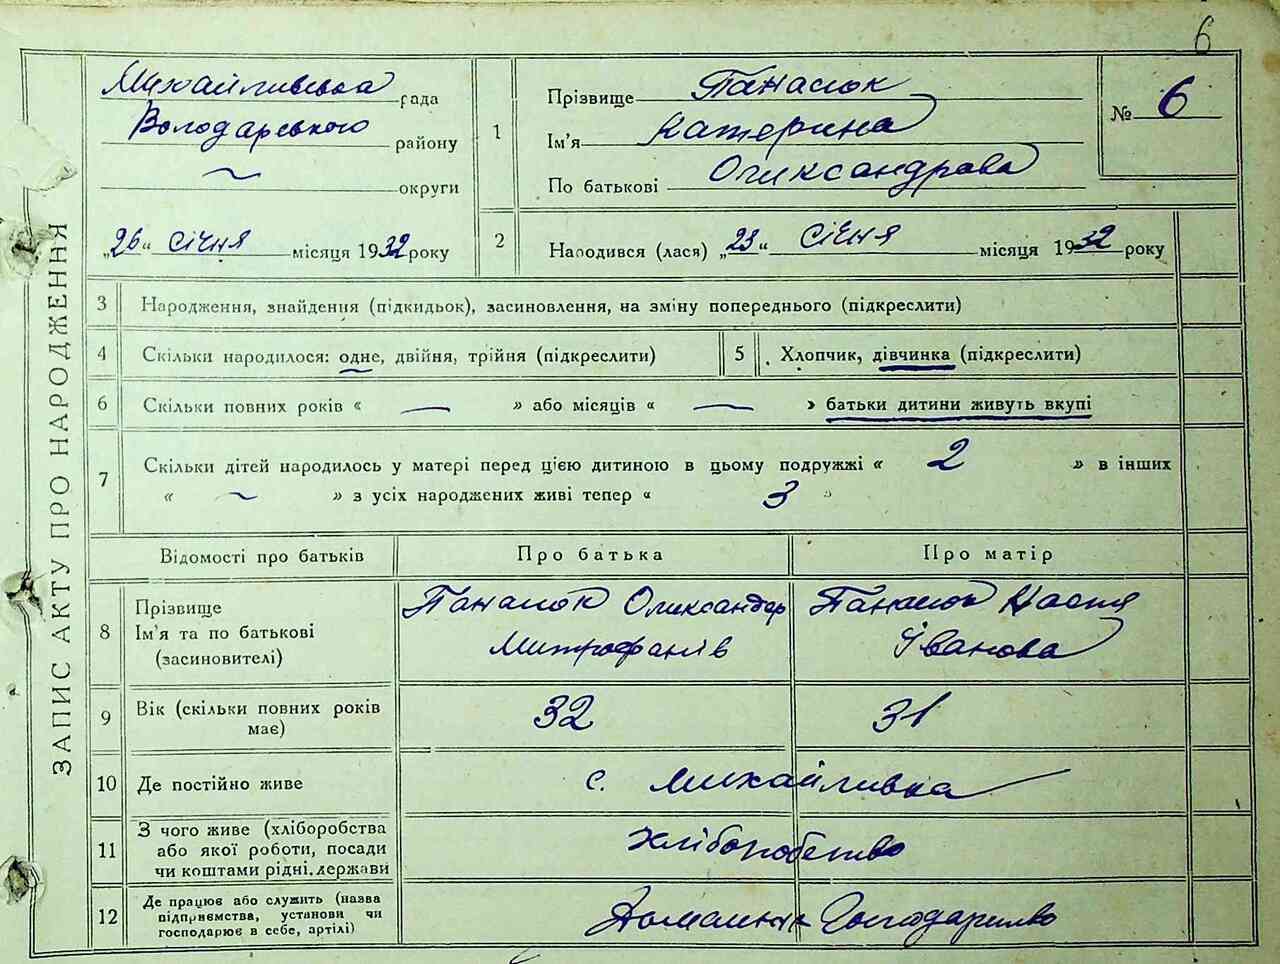 6
ЗАПИС АКТУ ПРО НАРОДЖЕННЯ
Михайливська рада
Володарського району
~ округи
„26“ січня місяця 1932 року
1
Прізвище Панасюк
Ім'я Катерина
По батькові Олександрова
№ 6
2
Народився (лася) „23“ січня місяця 1932 року
3 Народження, знайдення (підкидьок), засиновлення, на зміну попереднього (підкреслити)
4 Скільки народилося: одне, двійня, трійня (підкреслити)
5 Хлопчик, дівчинка (підкреслити)
6 Скільки повних років « — » або місяців « — » батьки дитини живуть вкупі
7 Скільки дітей народилось у матері перед цією дитиною в цьому подружжі « 2 » в інших
« ~ » з усіх народжених живі тепер « 3 »
Відомості про батьків Про батька Про матір
8
Прізвище
Ім'я та по батькові
(засиновителі)
Панасюк Олександер
Митрофанів
Панасюк Настя
Іванова
9 Вік (скільки повних років
має)
32 31
10 Де постійно живе с. Михайливка
11
З чого живе (хліборобства
або якої роботи, посади
чи коштами рідні, держави
Хліборобство
12
Де працює або служить (назва
підприємства, установи чи
господарює в себе, артілі)
Господарство